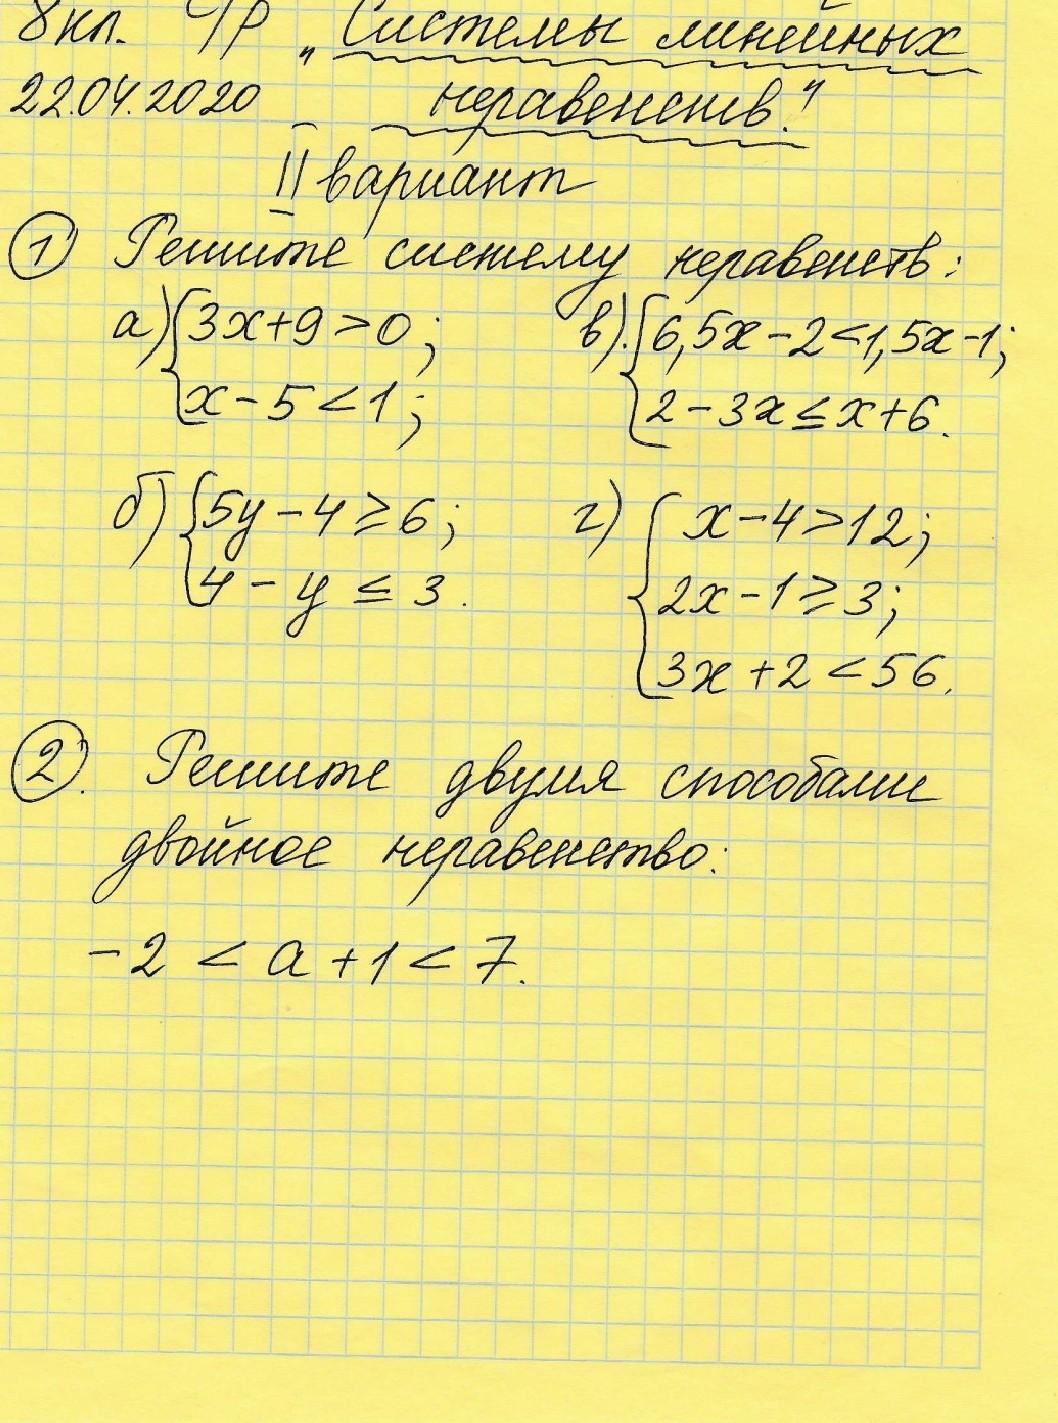 8 кл. ЧР „Системы линейных
22.04.2020 неравенств."
II вариант
1 Решите систему неравенств:
а) {3x+9>0;
x-5<1;
в). {6,5x-2<1,5x-1;
2-3x≤x+6.
б) {5y-4≥6;
4-y≤3.
г) {x-4>12;
2x-1≥3;
3x+2<56.
2. Решите двумя способами
двойное неравенство:
-2<a+1<7.